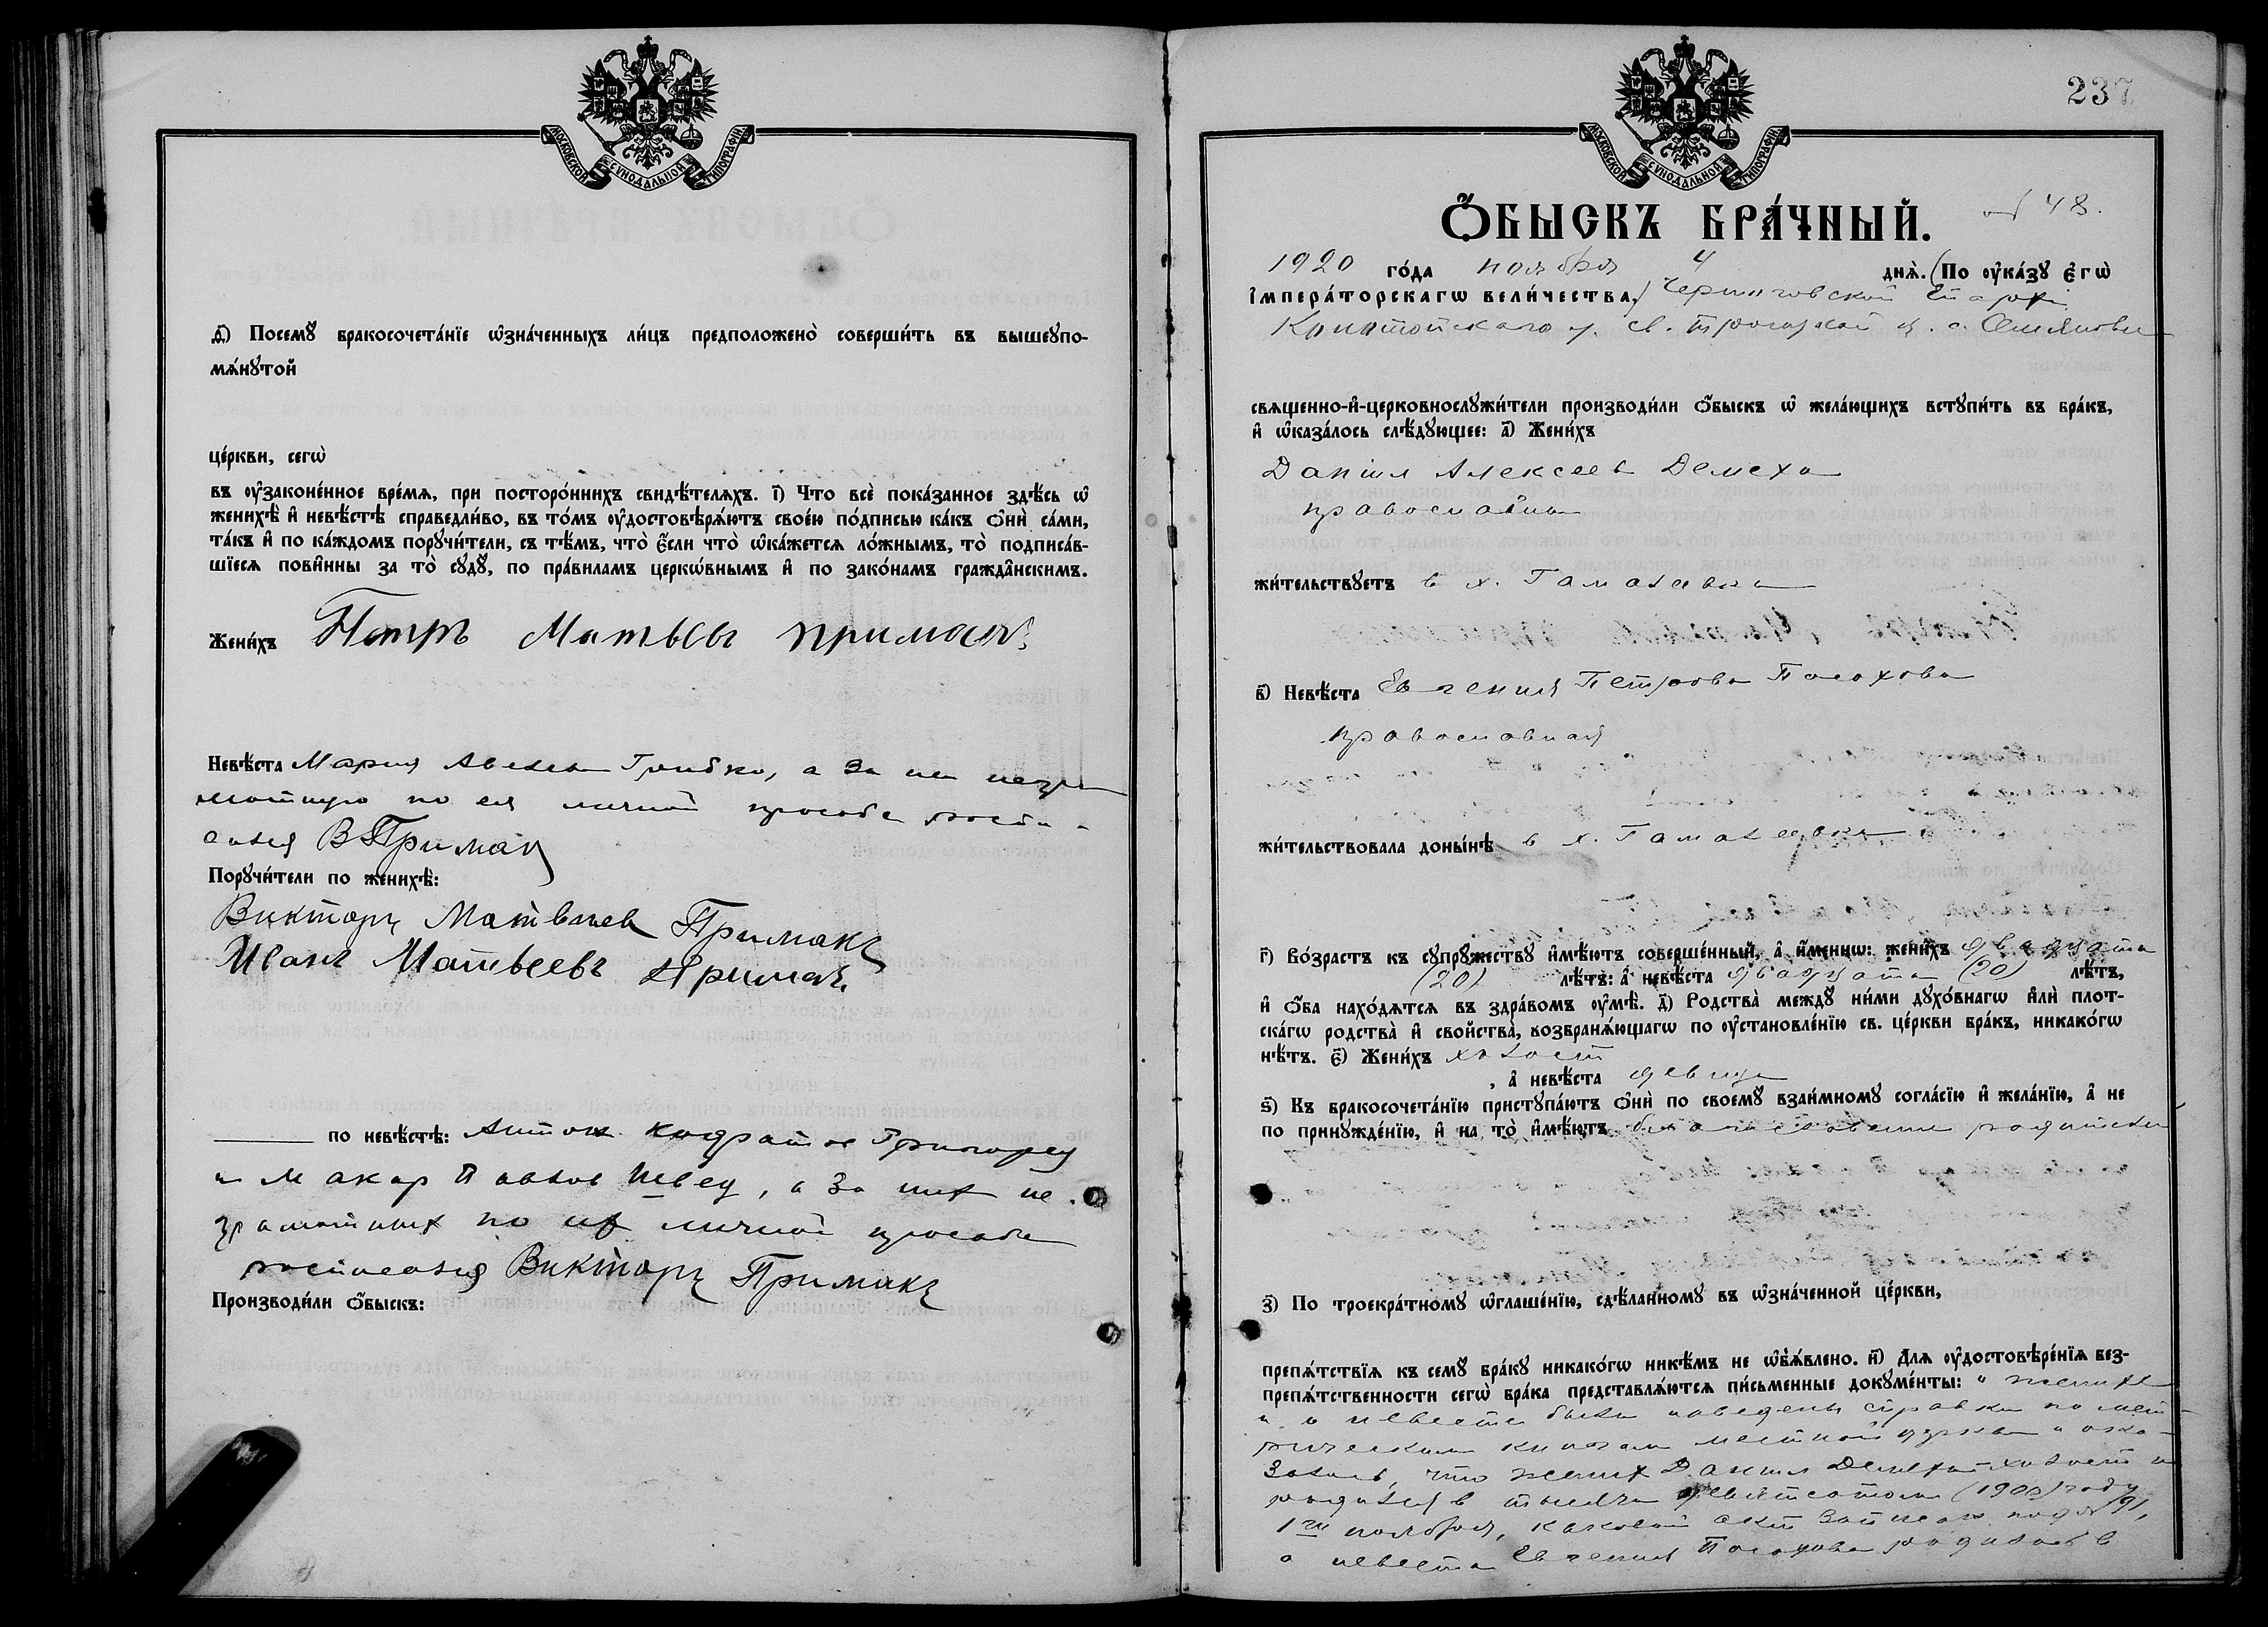 МОСКОВСКОЙ СѴНОДАЛЬНОЙ ТИПОГРАФІИ
ѳ҃) Посемꙋ̀ бракосочета́нїе ѡ҆зна́ченныхъ ли́цъ предположено̀ соверши́ть въ вышеꙋпо-
мѧ́нꙋтой
це́ркви, сегѡ̀
въ ᲂу҆зако́ненное вре́мѧ, при посторо́ннихъ свидѣ́телѧхъ. і҃) Что всѐ пока́занное здѣ́сь ѡ҆
женихѣ̀ и҆ невѣ́стѣ справедли́во, въ то́мъ ᲂу҆достовѣрѧ́ютъ свое́ю по́дписью ка́къ ѻ҆нѝ са́ми,
та́къ и҆ по ка́ждомъ порꙋчи́тели, съ тѣ́мъ, что̀ є҆́сли что̀ ѡ҆ка́жетсѧ ло́жнымъ, то̀ подписа́в-
шїесѧ пови́нны за то̀ сꙋдꙋ̀, по пра́виламъ церкѡ́внымъ и҆ по зако́намъ гражда̂нскимъ.
Жени́хъ Петръ Матвеев Примакъ
Невѣ́ста Мария Грибко, а за нея неграмотную по ея личной просьбе росписался ВПримак
Порꙋчи́тели по женихѣ̀:
Викторъ Матвѣев Примакъ
Иванъ Матвѣевъ Примакъ
по невѣ́стѣ: Антон Кодратов Григорец
и Макар Павлов Швец, а за них не-
грамотных по их личной просьбе
росписался Викторъ Примакъ
Производи́ли ѻ҆́быскъ:
237
МОСКОВСКОЙ СѴНОДАЛЬНОЙ ТИПОГРАФІИ
Ѻ҆́БЫСКЪ БРА́ЧНЫЙ. 48.
1920 го́да ноября 4 днѧ̀. (По ᲂу҆ка́зꙋ є҆гѡ̀
і҆мпера́торскагѡ вели́чества,) Черниговской Епархи
Конотопского у. св. Троицкой ц. с.
свѧщенно-и҆-церковнослꙋжи́тели производи́ли ѻ҆́быскъ ѡ҆ жела́ющихъ встꙋпи́ть въ бра́къ,
и҆ ѡ҆каза́лось слѣ́дꙋющее: а҃) Жени́хъ
Данил Алексеев Демеха
православный
жи́тельствꙋетъ в х. Гамалеевка
в҃) Невѣ́ста Евгения Петрова Полохова
православная
жи́тельствовала доны́нѣ в х. Гамалеевка
г҃) Во́зрастъ къ сꙋпрꙋ́жествꙋ и҆мѣ́ютъ соверше́нный, а҆ и҆́менно: жени́хъ двадцати
(20) лѣ́тъ: а҆ невѣ́ста двадцати (20) лѣ́тъ,
и҆ ѻ҆́ба нахо́дѧтсѧ въ здра́вомъ ᲂу҆мѣ̀. д҃) Родства̀ междꙋ̀ ни́ми дꙋхо́внагѡ и҆лѝ плот-
ска́гѡ родства̀ и҆ свойства̀, возбранѧ́ющагѡ по ᲂу҆становле́нїю св. це́ркви бра́къ, никако́гѡ
нѣ́тъ. є҃) Жени́хъ холост
, а҆ невѣ́ста девица
ѕ҃) Къ бракосочета́нїю пристꙋпа́ютъ ѻ҆нѝ по своемꙋ̀ взаи́мномꙋ согла́сїю и҆ жела́нїю, а҆ не
по принꙋжде́нїю, и҆ на то̀ и҆мѣ́ютъ благословение родителей
з҃) По троекра́тномꙋ ѡ҆глаше́нїю, сдѣ́ланномꙋ въ ѡ҆зна́ченной це́ркви,
препѧ́тствїѧ къ семꙋ̀ бра́кꙋ никако́гѡ никѣ́мъ не ѡ҆б̾ѧ́влено. и҃) Длѧ ᲂу҆достовѣре́нїѧ без-
препѧ́тственности сегѡ̀ бра́ка представлѧ́ютсѧ пи́сьменные докꙋме́нты: о женихе
и о невесте были наведены справки по мет-
рическим книгам местной церкви и ока-
залось, что жених Данил Демеха холост и
родился в тысяча девятсотом (1900) году
1го ноября, каковой акт записан под № 91,
а невеста Евгения Полохова родилась в